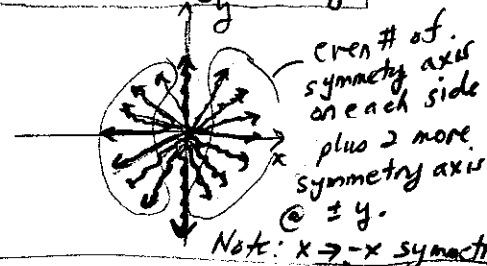 y
even # of
symmetry axis
on each side
plus 2 more
symmetry axis
@ ± y.
x
Note: x → -x symmetr